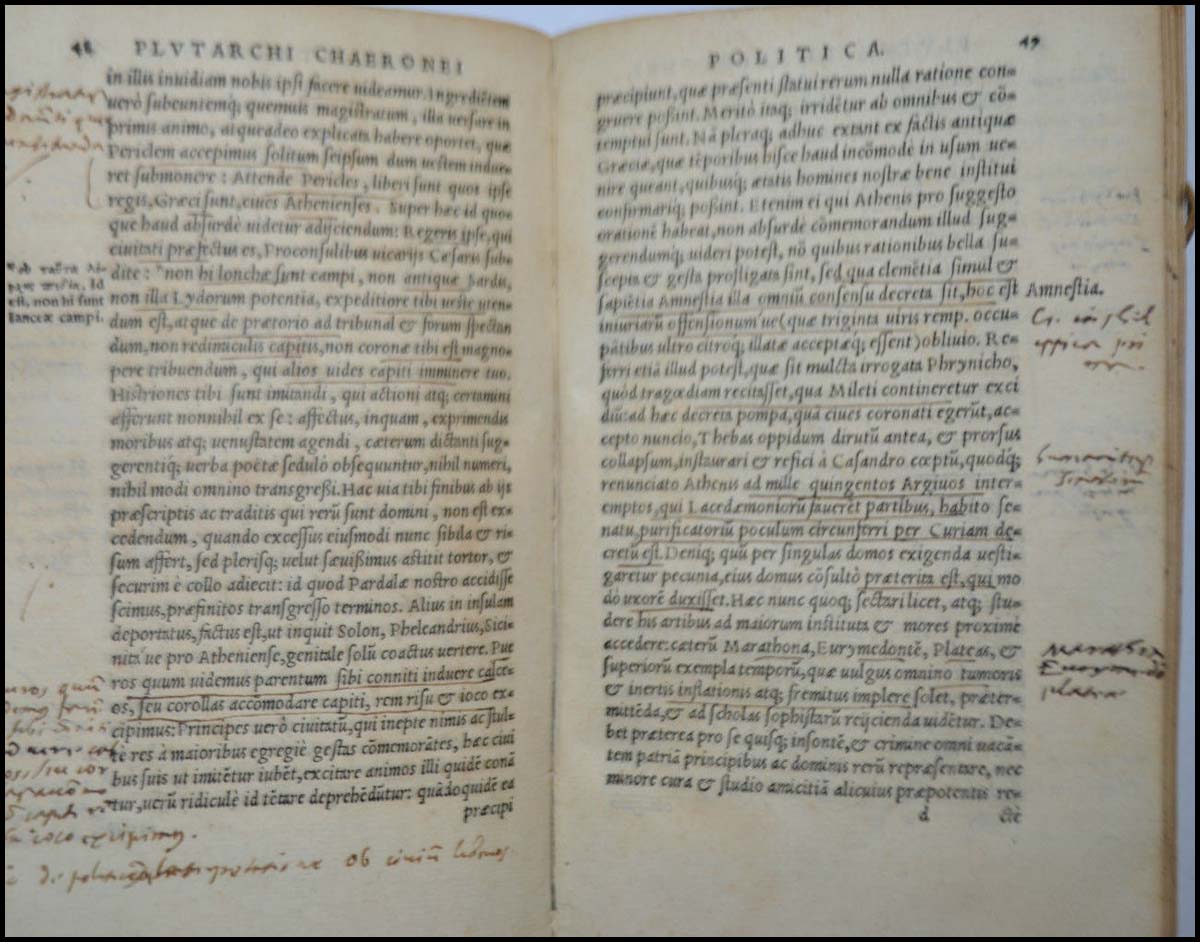 48 PLVTARCHI CHAERONEI
in illis inuidiam nobis ipsi facere uideamur. Ingrediētem
uerò subeuntemq́; quemuis magistratum, illa uersare in
primis animo, atque adeo explicata habere oportet, quæ
Periclem accepimus solitum seipsum dum uestem indue-
ret submonere: Attende Pericles, liberi sunt quos ipse
regis, Græci sunt, ciues Athenienses. Super hæc id quo-
que haud absurdè uidetur adijciendum: Regeris ipse, qui
ciuitati præfectus es, Proconsulibus uicarijs Cæsaris sub-
dite: *non hi lonchæ sunt campi, non antiquæ Sardis,
non illa Lydorum potentia, expeditiore tibi ueste uten-
dum est, atque de prætorio ad tribunal & forum spectan
dum, non redimiculis capitis, non coronæ tibi est magno-
pere tribuendum, qui alios uides capiti imminere tuo.
Histriones tibi sunt imitandi, qui actioni atq; certamini
afferunt nonnihil ex se: affectus, inquam, exprimendis
moribus atq; uenustatem agendi, cæterum dictanti sug-
gerentiq́; uerba poëtæ sedulò obsequuntur, nihil numeri,
nihil modi omnino transgreßi. Hac uia tibi finibus ab ijs
præscriptis ac traditis qui rerū sunt domini, non est ex-
cedendum, quando excessus eiusmodi nunc sibila & ri-
sum affert, sed plerisq; uelut sæuißimus astitit tortor, &
securim è collo adiecit: id quod Pardalæ nostro accidisse
scimus, præfinitos transgresso terminos. Alius in insulam
deportatus, factus est, ut inquit Solon, Pheleandrius, Sici-
nita'ue pro Atheniense, genitale solū coactus uertere. Pue
ros quum uidemus parentum sibi conniti induere calce-
os, seu corollas accōmodare capiti, rem risu & ioco ex-
cipimus: Principes uerò ciuitatū, qui ineptè nimis ac stul-
tè res à maioribus egregiè gestas cōmemorātes, hæc ciui
bus suis ut imitētur iubēt, excitare animos illi quidē conā
tur, uerū ridiculè id tētare deprehēdūtur: quādoquidē ea
præcipi
est, non hi sunt
lanceæ campi.
POLITICA. 49
præcipiunt, quæ præsenti statui rerum nulla ratione con-
gruere poßint. Meritò itaq; irridētur ab omnibus & cō-
temptui sunt. Nā pleraq; adhuc extant ex factis antiquæ
Græciæ, quæ tēporibus hisce haud incōmodè in usum ue-
nire queant, quibusq́; ætatis homines nostræ bene institui
confirmariq́; poßint. Etenim ei qui Athenis pro suggesto
orationē habeat, non absurdè cōmemorandum illud sug-
gerendumq́; uideri potest, nō quibus rationibus bella su-
scepta & gesta profligata sint, sed qua clemētia simul &
sapiētia Amnestia illa omniū consensu decreta sit, hoc est
iniuriarū offensionum'ue (quæ triginta uiris remp. occu-
pātibus ultro citroq́; illatæ acceptæq́; essent) obliuio. Re-
ferri etiā illud potest, quæ sit mulcta irrogata Phrynicho,
quòd tragœdiam recitasset, qua Mileti contineretur exci
diū: ad hæc decreta pompa, quā ciues coronati egerūt, ac-
cepto nuncio, Thebas oppidum dirutū antea, & prorsus
collapsum, instaurari & refici à Casandro cœptū, quodq́;
renunciato Athenis ad mille quingentos Argiuos inter-
emptos, qui Lacedæmoniorū faueret partibus, habito se-
natu, purificatoriū poculum circunferri per Curiam de-
cretū est. Deniq; quū per singulas domos exigenda uesti-
garetur pecunia, eius domus cōsultò præterita est, qui mo
dò uxorē duxisset. Hæc nunc quoq; sectari licet, atq; stu-
dere his artibus ad maiorum instituta & mores proximè
accedere: cæterū Marathona, Eurymedontē, Plateas, &
superiorū exempla temporū, quæ uulgus omnino tumoris
& inertis inflationis atq; fremitus implere solet, præter-
mittēda, & ad scholas sophistarū reijcienda uidētur. De-
bet præterea pro se quisq; insontē, & crimine omni uacā-
tem patriā principibus ac dominis rerū repræsentare, nec
minore cura & studio amicitiā alicuius præpotentis re-
d ctè
Amnestia.